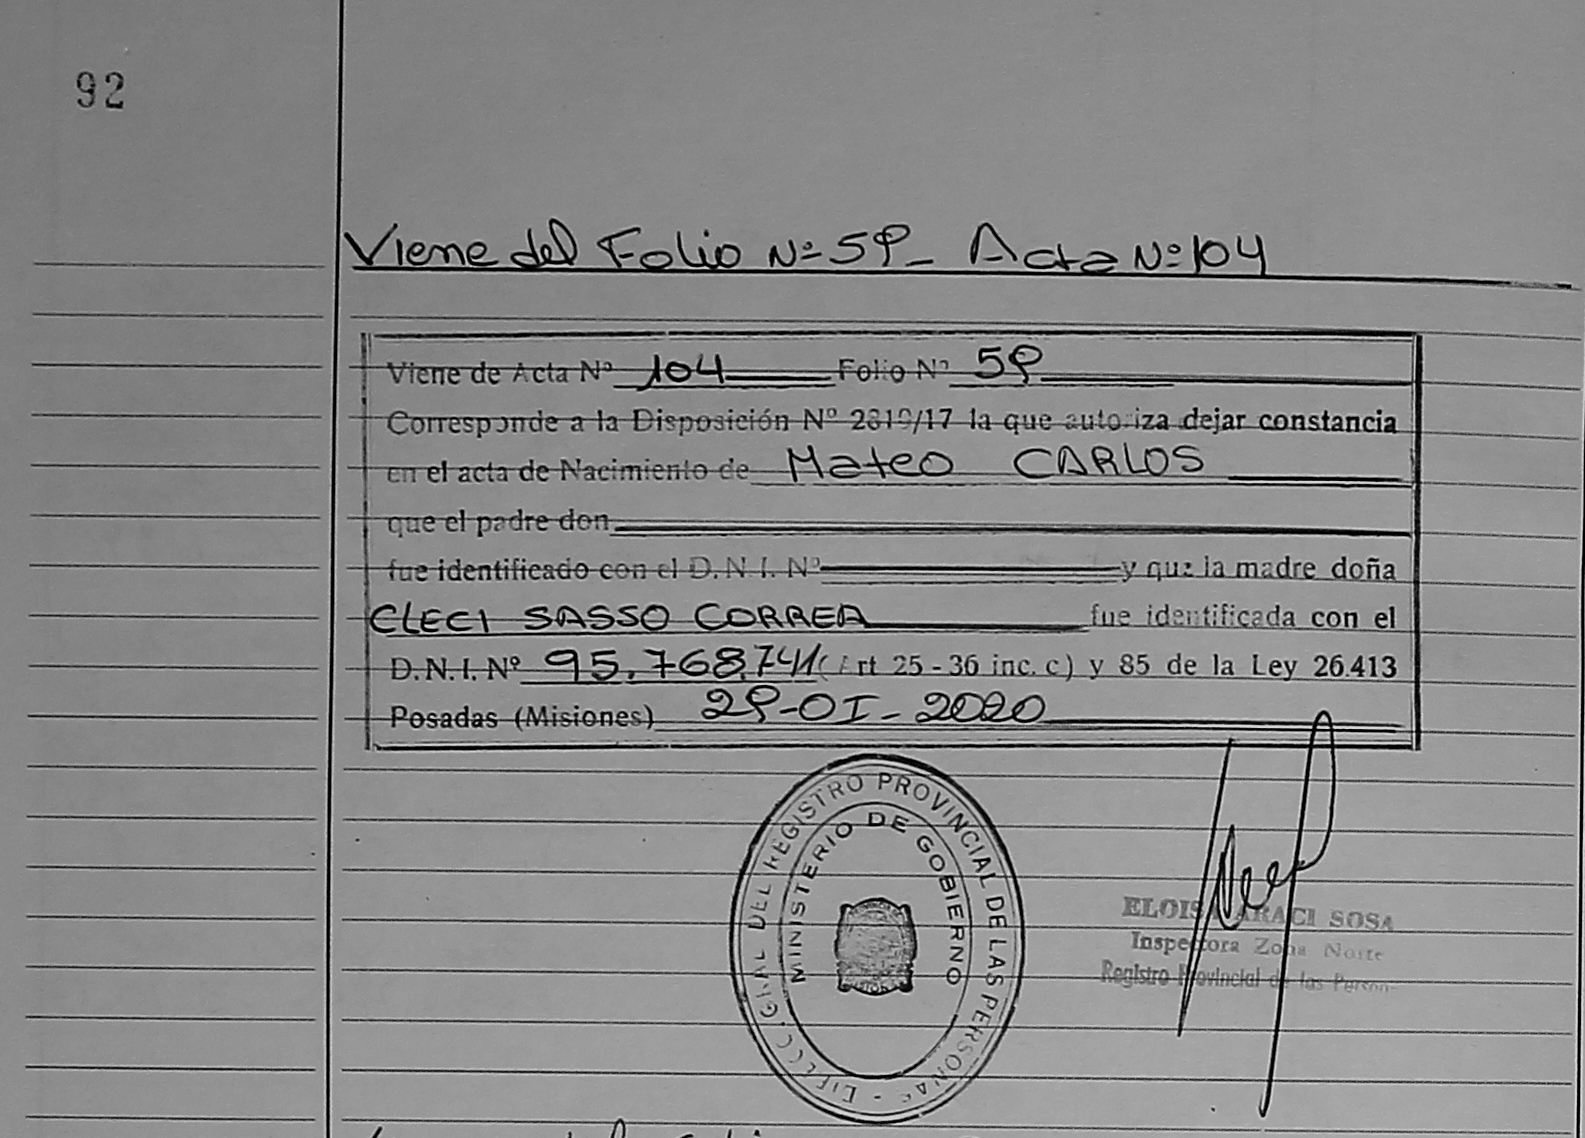 92
Viene del Folio Nº 59_ Acta Nº 104
Viene de Acta Nº 104 Folio Nº 59
Corresponde a la Disposición Nº 2819/17 la que autoriza dejar constancia
en el acta de Nacimiento de Mateo CARLOS
que el padre don
fue identificado con el D.N.I. Nº y que la madre doña
CLECI SASSO CORREA fue identificada con el
D.N.I. Nº 95.768.741 (Art 25 - 36 inc. c) y 85 de la Ley 26.413
Posadas (Misiones) 29-OI-2020
GRAL DEL REGISTRO PROVINCIAL DE LAS PERSONAS
MINISTERIO DE GOBIERNO
ELOISA ARACI SOSA
Inspectora Zona Norte
Registro Provincial de las Person